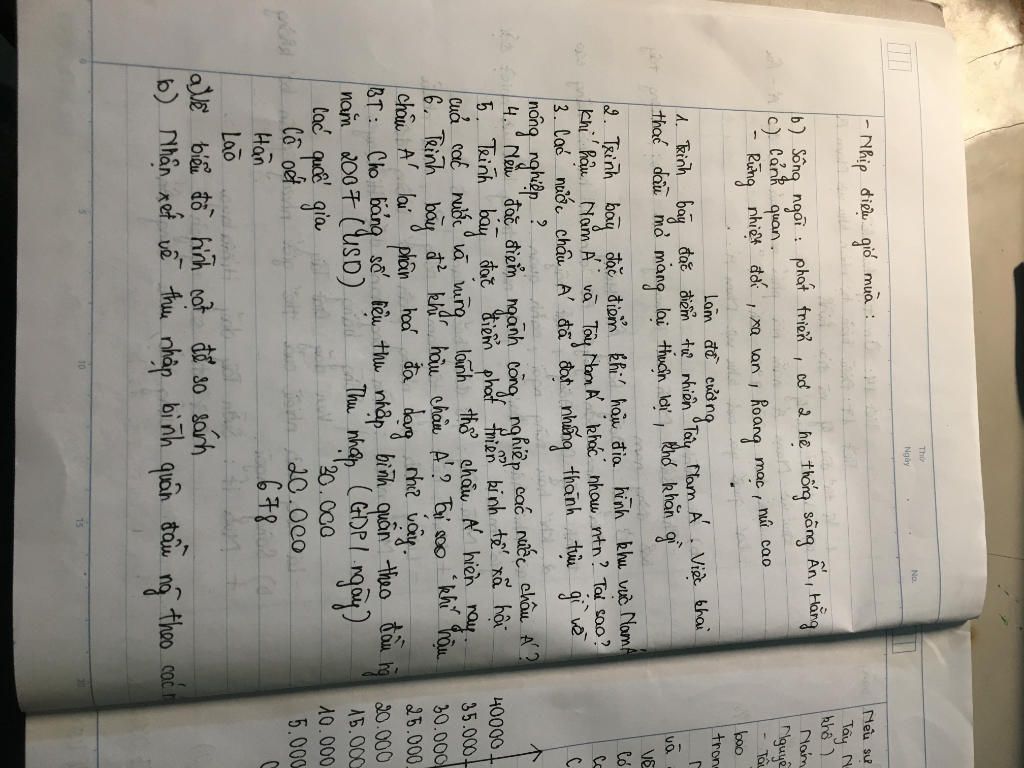 Thứ
Ngày
No.
- Nhịp điệu gió mùa :
b) Sông ngòi : phát triển, có 2 hệ thống sông Ấn, Hằng
c) Cảnh quan
- Rừng nhiệt đới, xa van, hoang mạc, núi cao
Làm đề cương
1. Trình bày đặc điểm tự nhiên Tây Nam Á. Việc khai
thác dầu mỏ mang lại thuận lợi, khó khăn gì
2. Trình bày đặc điểm khí hậu địa hình khu vực Nam Á
Khí hậu Nam Á và Tây Nam Á khác nhau ntn? Tại sao?
3. Các nước châu Á đã đạt những thành tựu gì về
nông nghiệp ?
4. Nêu đặc điểm ngành công nghiệp các nước châu Á ?
5. Trình bày đặc điểm phát triển kinh tế xã hội
của các nước và vùng lãnh thổ châu Á hiện nay.
6. Trình bày đ² khí hậu châu Á ? Tại sao khí hậu
châu Á lại phân hoá đa dạng như vậy.
BT : Cho bảng số liệu thu nhập bình quân theo đầu ng
năm 2007 (USD)
Các quốc gia Thu nhập (GDP / ngày)
Cô oét 30.000
Hàn 20.000
Lào 678
a) Vẽ biểu đồ hình cột để so sánh
b) Nhận xét về thu nhập bình quân đầu ng theo các
5
10
15
20
Nêu sự
Tây N
khô)
Nam
Nguyê
bao
tron
và
Về
Có
40000
35.000
30.000
25.000
20.000
15.000
10.000
5.000